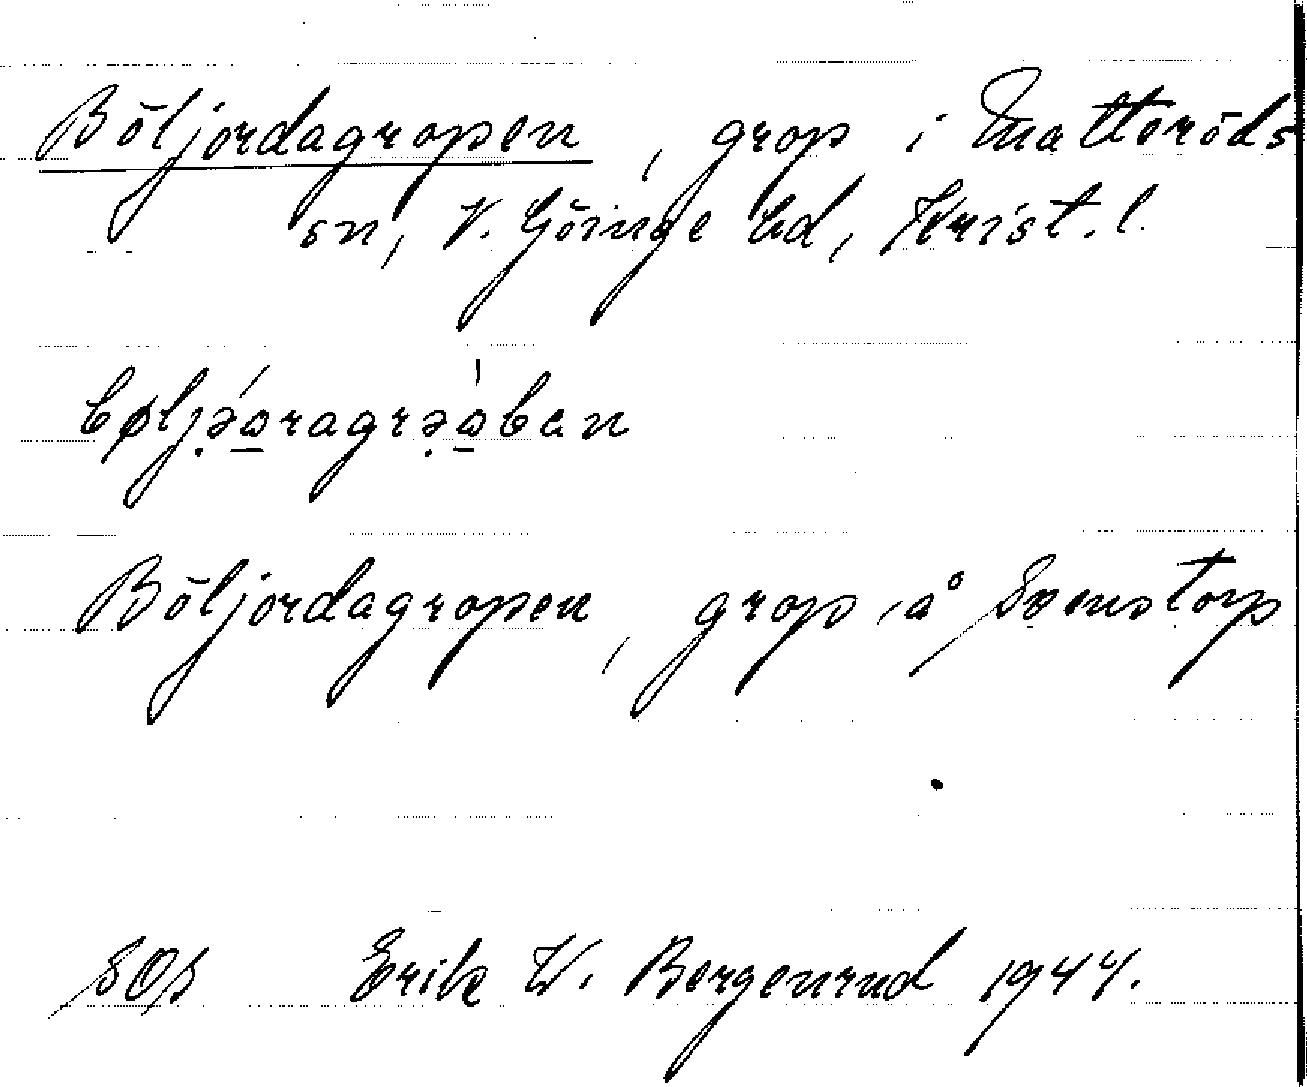 Böljordagropen, grop i Matteröds
sn, V. Göinge hd, Krist. l.
bøljə̣o̲ragrə̣o̲ban
Böljordagropen, grop å Svenstorp
SOS Erik W. Bergenrud 1944.